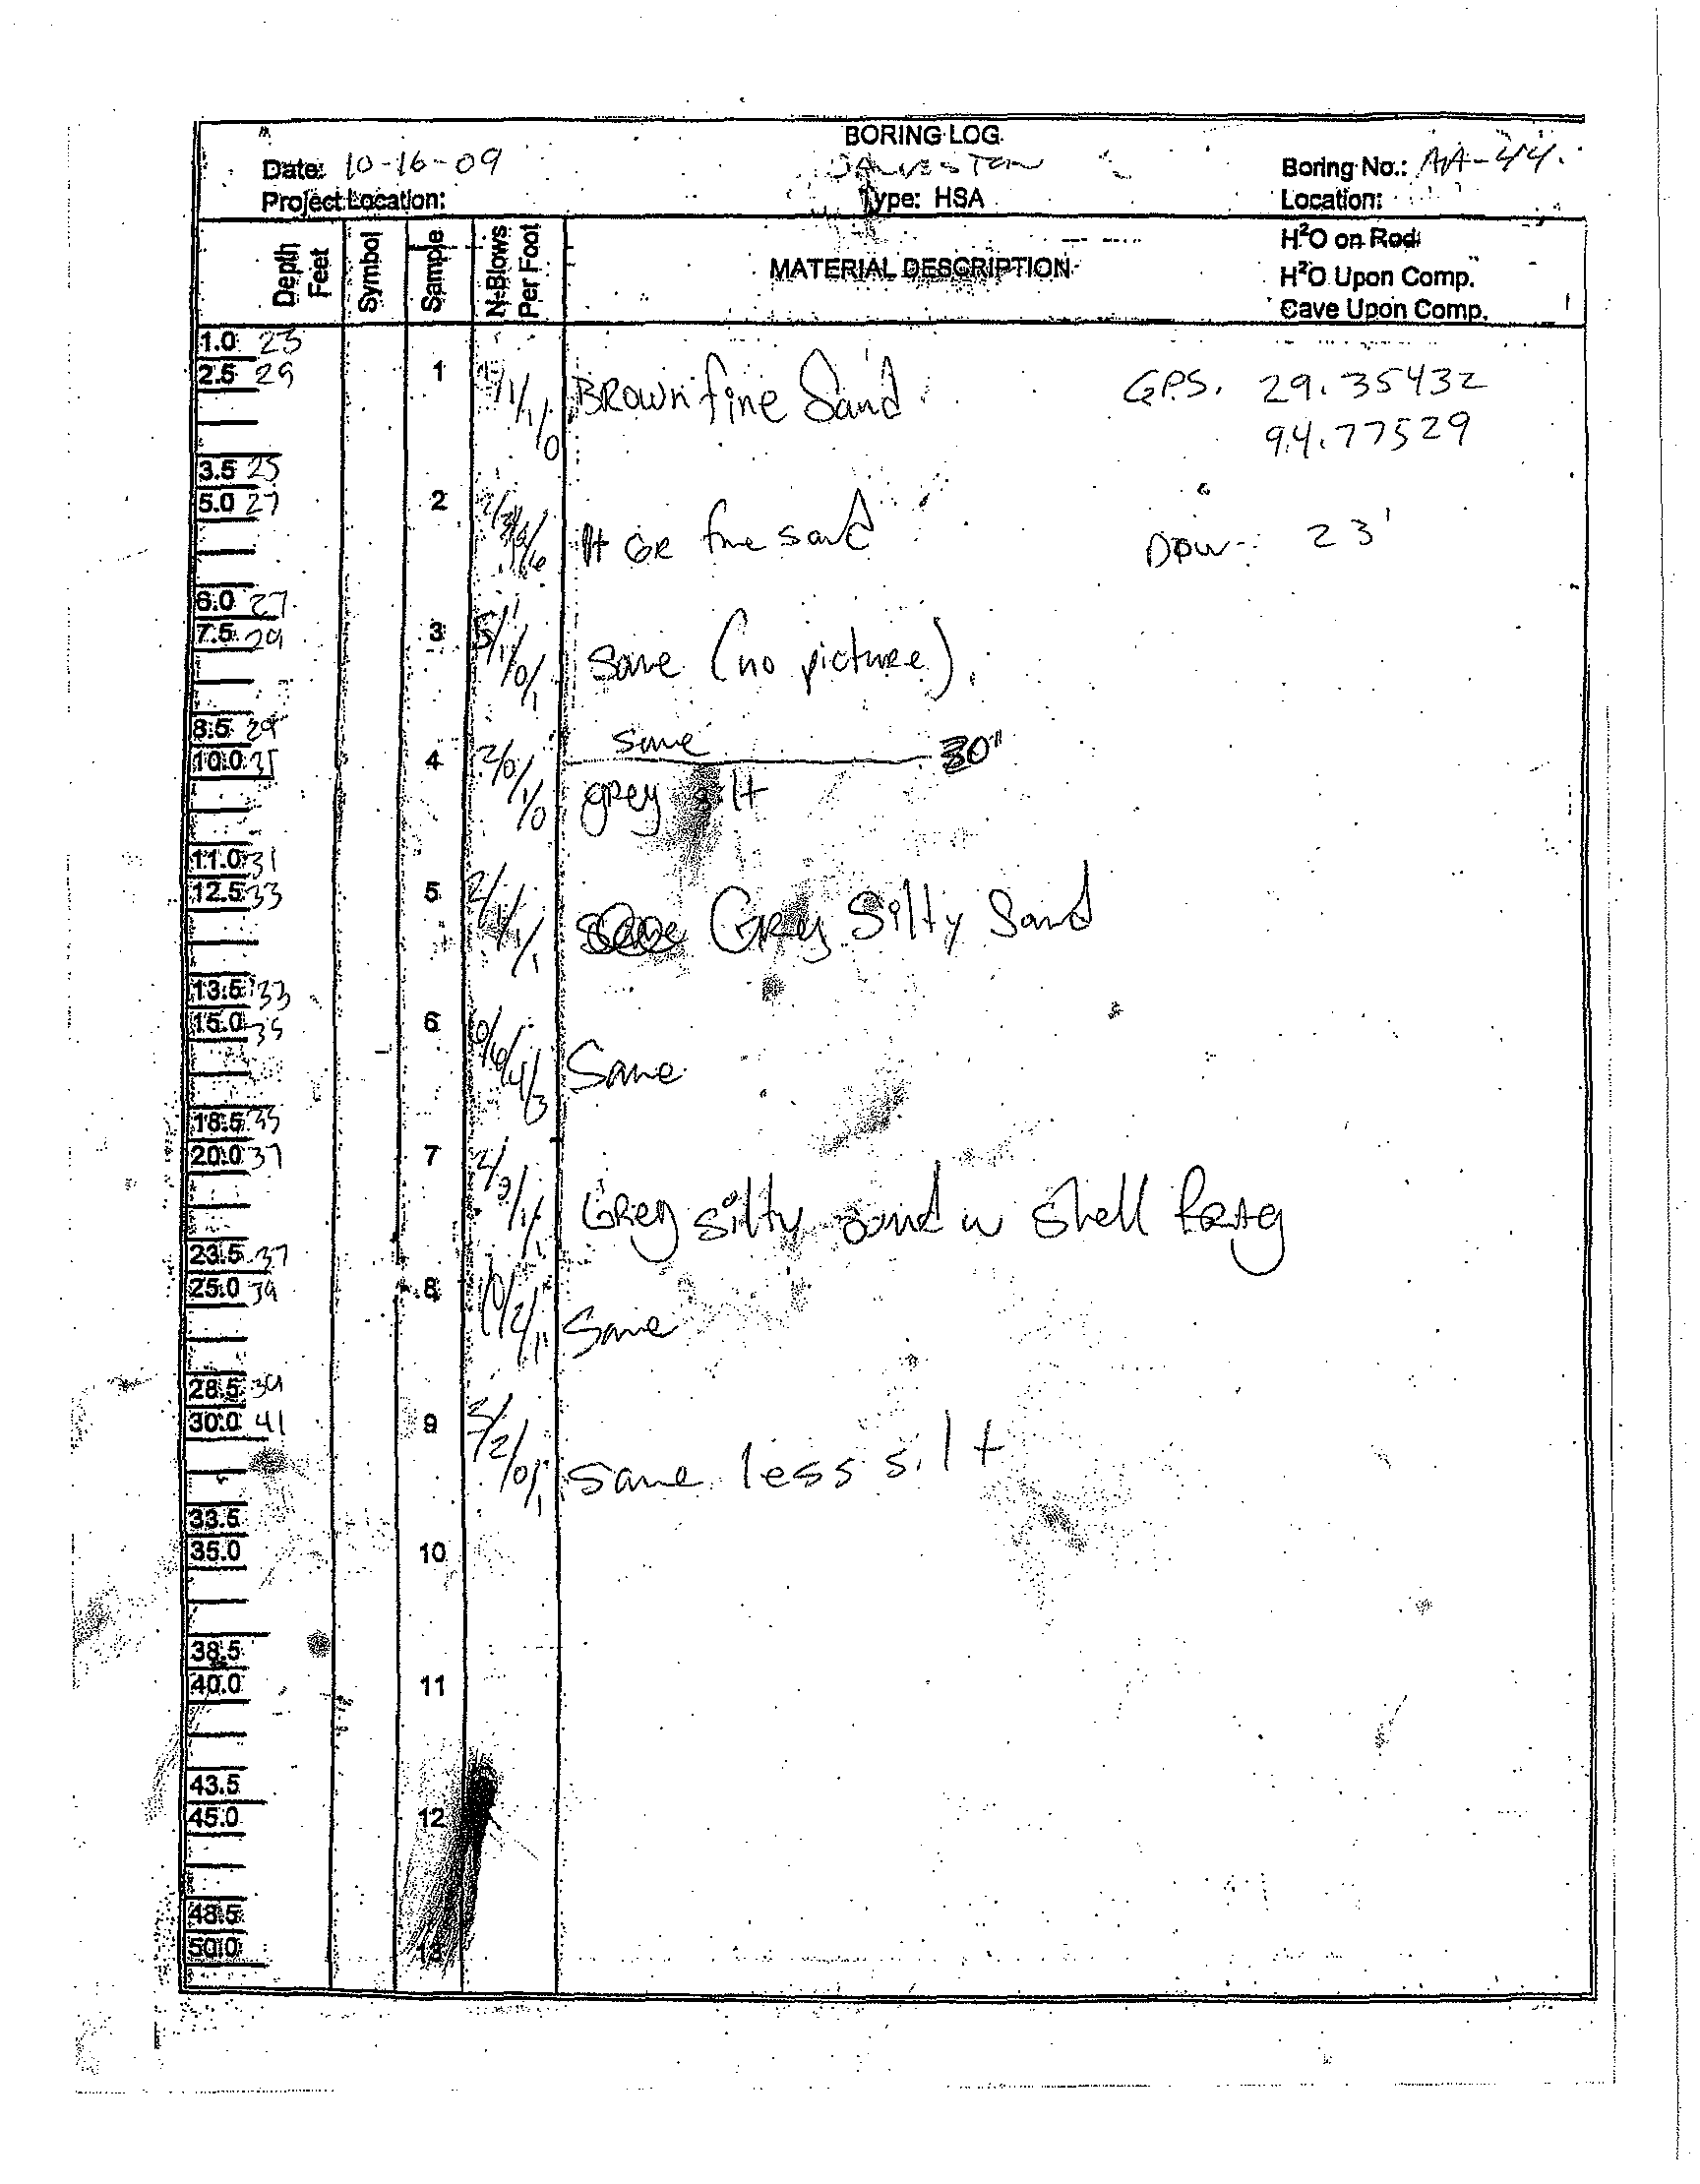 BORING LOG
Date: 10-16-09 GALVESTON Boring No.: AA-44
Project Location: Type: HSA Location:
Depth Feet Symbol Sample N-Blows Per Foot MATERIAL DESCRIPTION H²O on Rod
H²O Upon Comp.
Cave Upon Comp.
1.0 23
2.5 29 1 1/1/1/0 BROWN fine Sand GPS. 29.35432
94.77529
3.5 25
5.0 27 2 lt GR fine sand DOW: 23'
6.0 27
7.5 29 3 5/1/0/1 Same (no picture)
8.5 29 same 30"
10.0 31 4 2/0/1/0 grey silt
11.0 31
12.5 33 5 2/1/1/1 Grey Silty Sand
13.5 33
15.0 35 6 Same
18.5 35
20.0 37 7 Grey silty sand w shell frag
23.5 37
25.0 39 8 Same
28.5 39
30.0 41 9 same less silt
33.5
35.0 10
38.5
40.0 11
43.5
45.0 12
48.5
50.0 13